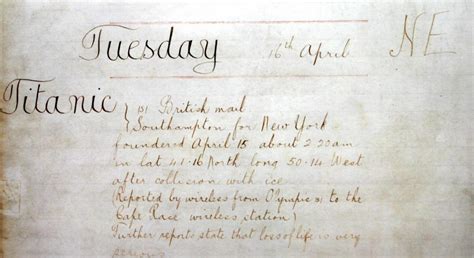 Tuesday 16th April NE
Titanic } British mail
Southampton for New York
foundered April 15 about 2.20am
in lat 41.16 North long 50.14 West
after collision with ice
(Reported by wireless from Olympic ss to the
Cape Race wireless station)
Further reports state that loss of life is very
serious